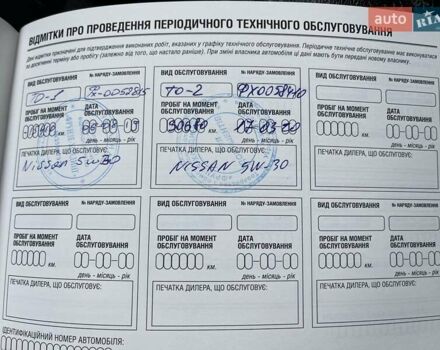 AUTO RIA
ВІДМІТКИ ПРО ПРОВЕДЕННЯ ПЕРІОДИЧНОГО ТЕХНІЧНОГО ОБСЛУГОВУВАННЯ
Дані відмітки призначені для підтвердження виконаних робіт, вказаних у графіку технічного обслуговування. Періодичне технічне обслуговування має виконуватися
по досягненні терміну або пробігу (залежно від того, що настало раніше). При зміні власника автомобіля ці дані мають бути передані новому власнику.
ВИД ОБСЛУГОВУВАННЯ № НАРЯДУ-ЗАМОВЛЕННЯ
ТО-1
ПРОБІГ НА МОМЕНТ ОБСЛУГОВУВАННЯ ДАТА ОБСЛУГОВУВАННЯ
км. день - місяць - рік
ПЕЧАТКА ДИЛЕРА, ЩО ОБСЛУГОВУЄ:
Nissan 5w-30
ВИД ОБСЛУГОВУВАННЯ № НАРЯДУ-ЗАМОВЛЕННЯ
ТО-2
ПРОБІГ НА МОМЕНТ ОБСЛУГОВУВАННЯ ДАТА ОБСЛУГОВУВАННЯ
км. день - місяць - рік
ПЕЧАТКА ДИЛЕРА, ЩО ОБСЛУГОВУЄ:
NISSAN 5W-30
ВИД ОБСЛУГОВУВАННЯ № НАРЯДУ-ЗАМОВЛЕННЯ
ПРОБІГ НА МОМЕНТ ОБСЛУГОВУВАННЯ ДАТА ОБСЛУГОВУВАННЯ
км. день - місяць - рік
ПЕЧАТКА ДИЛЕРА, ЩО ОБСЛУГОВУЄ:
ВИД ОБСЛУГОВУВАННЯ № НАРЯДУ-ЗАМОВЛЕННЯ
ПРОБІГ НА МОМЕНТ ОБСЛУГОВУВАННЯ ДАТА ОБСЛУГОВУВАННЯ
км. день - місяць - рік
ПЕЧАТКА ДИЛЕРА, ЩО ОБСЛУГОВУЄ:
ВИД ОБСЛУГОВУВАННЯ № НАРЯДУ-ЗАМОВЛЕННЯ
ПРОБІГ НА МОМЕНТ ОБСЛУГОВУВАННЯ ДАТА ОБСЛУГОВУВАННЯ
км. день - місяць - рік
ПЕЧАТКА ДИЛЕРА, ЩО ОБСЛУГОВУЄ:
ВИД ОБСЛУГОВУВАННЯ № НАРЯДУ-ЗАМОВЛЕННЯ
ПРОБІГ НА МОМЕНТ ОБСЛУГОВУВАННЯ ДАТА ОБСЛУГОВУВАННЯ
км. день - місяць - рік
ПЕЧАТКА ДИЛЕРА, ЩО ОБСЛУГОВУЄ:
ІДЕНТИФІКАЦІЙНИЙ НОМЕР АВТОМОБІЛЯ: